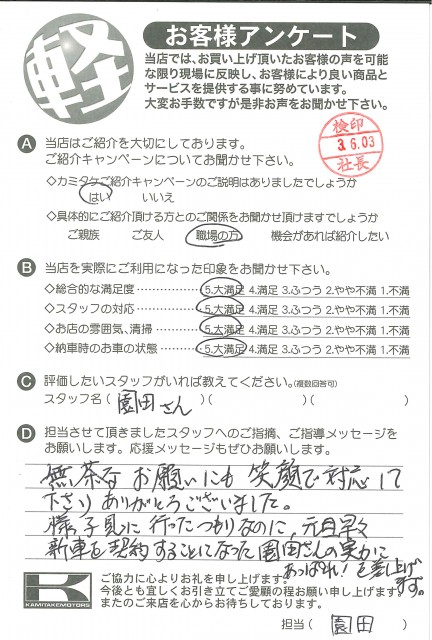 軽
お客様アンケート
当店では、お買い上げ頂いたお客様の声を可能
な限り現場に反映し、お客様により良い商品と
サービスを提供する事に努めています。
大変お手数ですが是非お声をお聞かせ下さい。
検印
3.6.03
社長
A 当店はご紹介を大切にしております。
ご紹介キャンペーンについてお聞かせ下さい。
◇カミタケご紹介キャンペーンのご説明はありましたでしょうか
はい いいえ
◇具体的にご紹介頂ける方とのご関係をお聞かせ頂けますでしょうか
ご親族 ご友人 職場の方 機会があれば紹介したい
B 当店を実際にご利用になった印象をお聞かせ下さい。
◇総合的な満足度………………5.大満足 4.満足 3.ふつう 2.やや不満 1.不満
◇スタッフの対応………………5.大満足 4.満足 3.ふつう 2.やや不満 1.不満
◇お店の雰囲気、清掃…………5.大満足 4.満足 3.ふつう 2.やや不満 1.不満
◇納車時のお車の状態…………5.大満足 4.満足 3.ふつう 2.やや不満 1.不満
C 評価したいスタッフがいれば教えてください。(複数回答可)
スタッフ名 ( 園田さん )( )( )
D 担当させて頂きましたスタッフへのご指摘、ご指導メッセージを
お願いします。応援メッセージもぜひお願いします。
無茶なお願いにも笑顔で対応して
下さりありがとうございました。
様子見に行ったつもりなのに、元旦早々
新車を契約することになった園田さんの実力に
あっぱれ!を差し上げ
ます。
K
KAMITAKEMOTORS
ご協力に心よりお礼を申し上げます。
今後とも宜しくお引き立てご愛顧の程お願い申し上げます。
またのご来店を心からお待ちしております。
担当 ( 園田 )